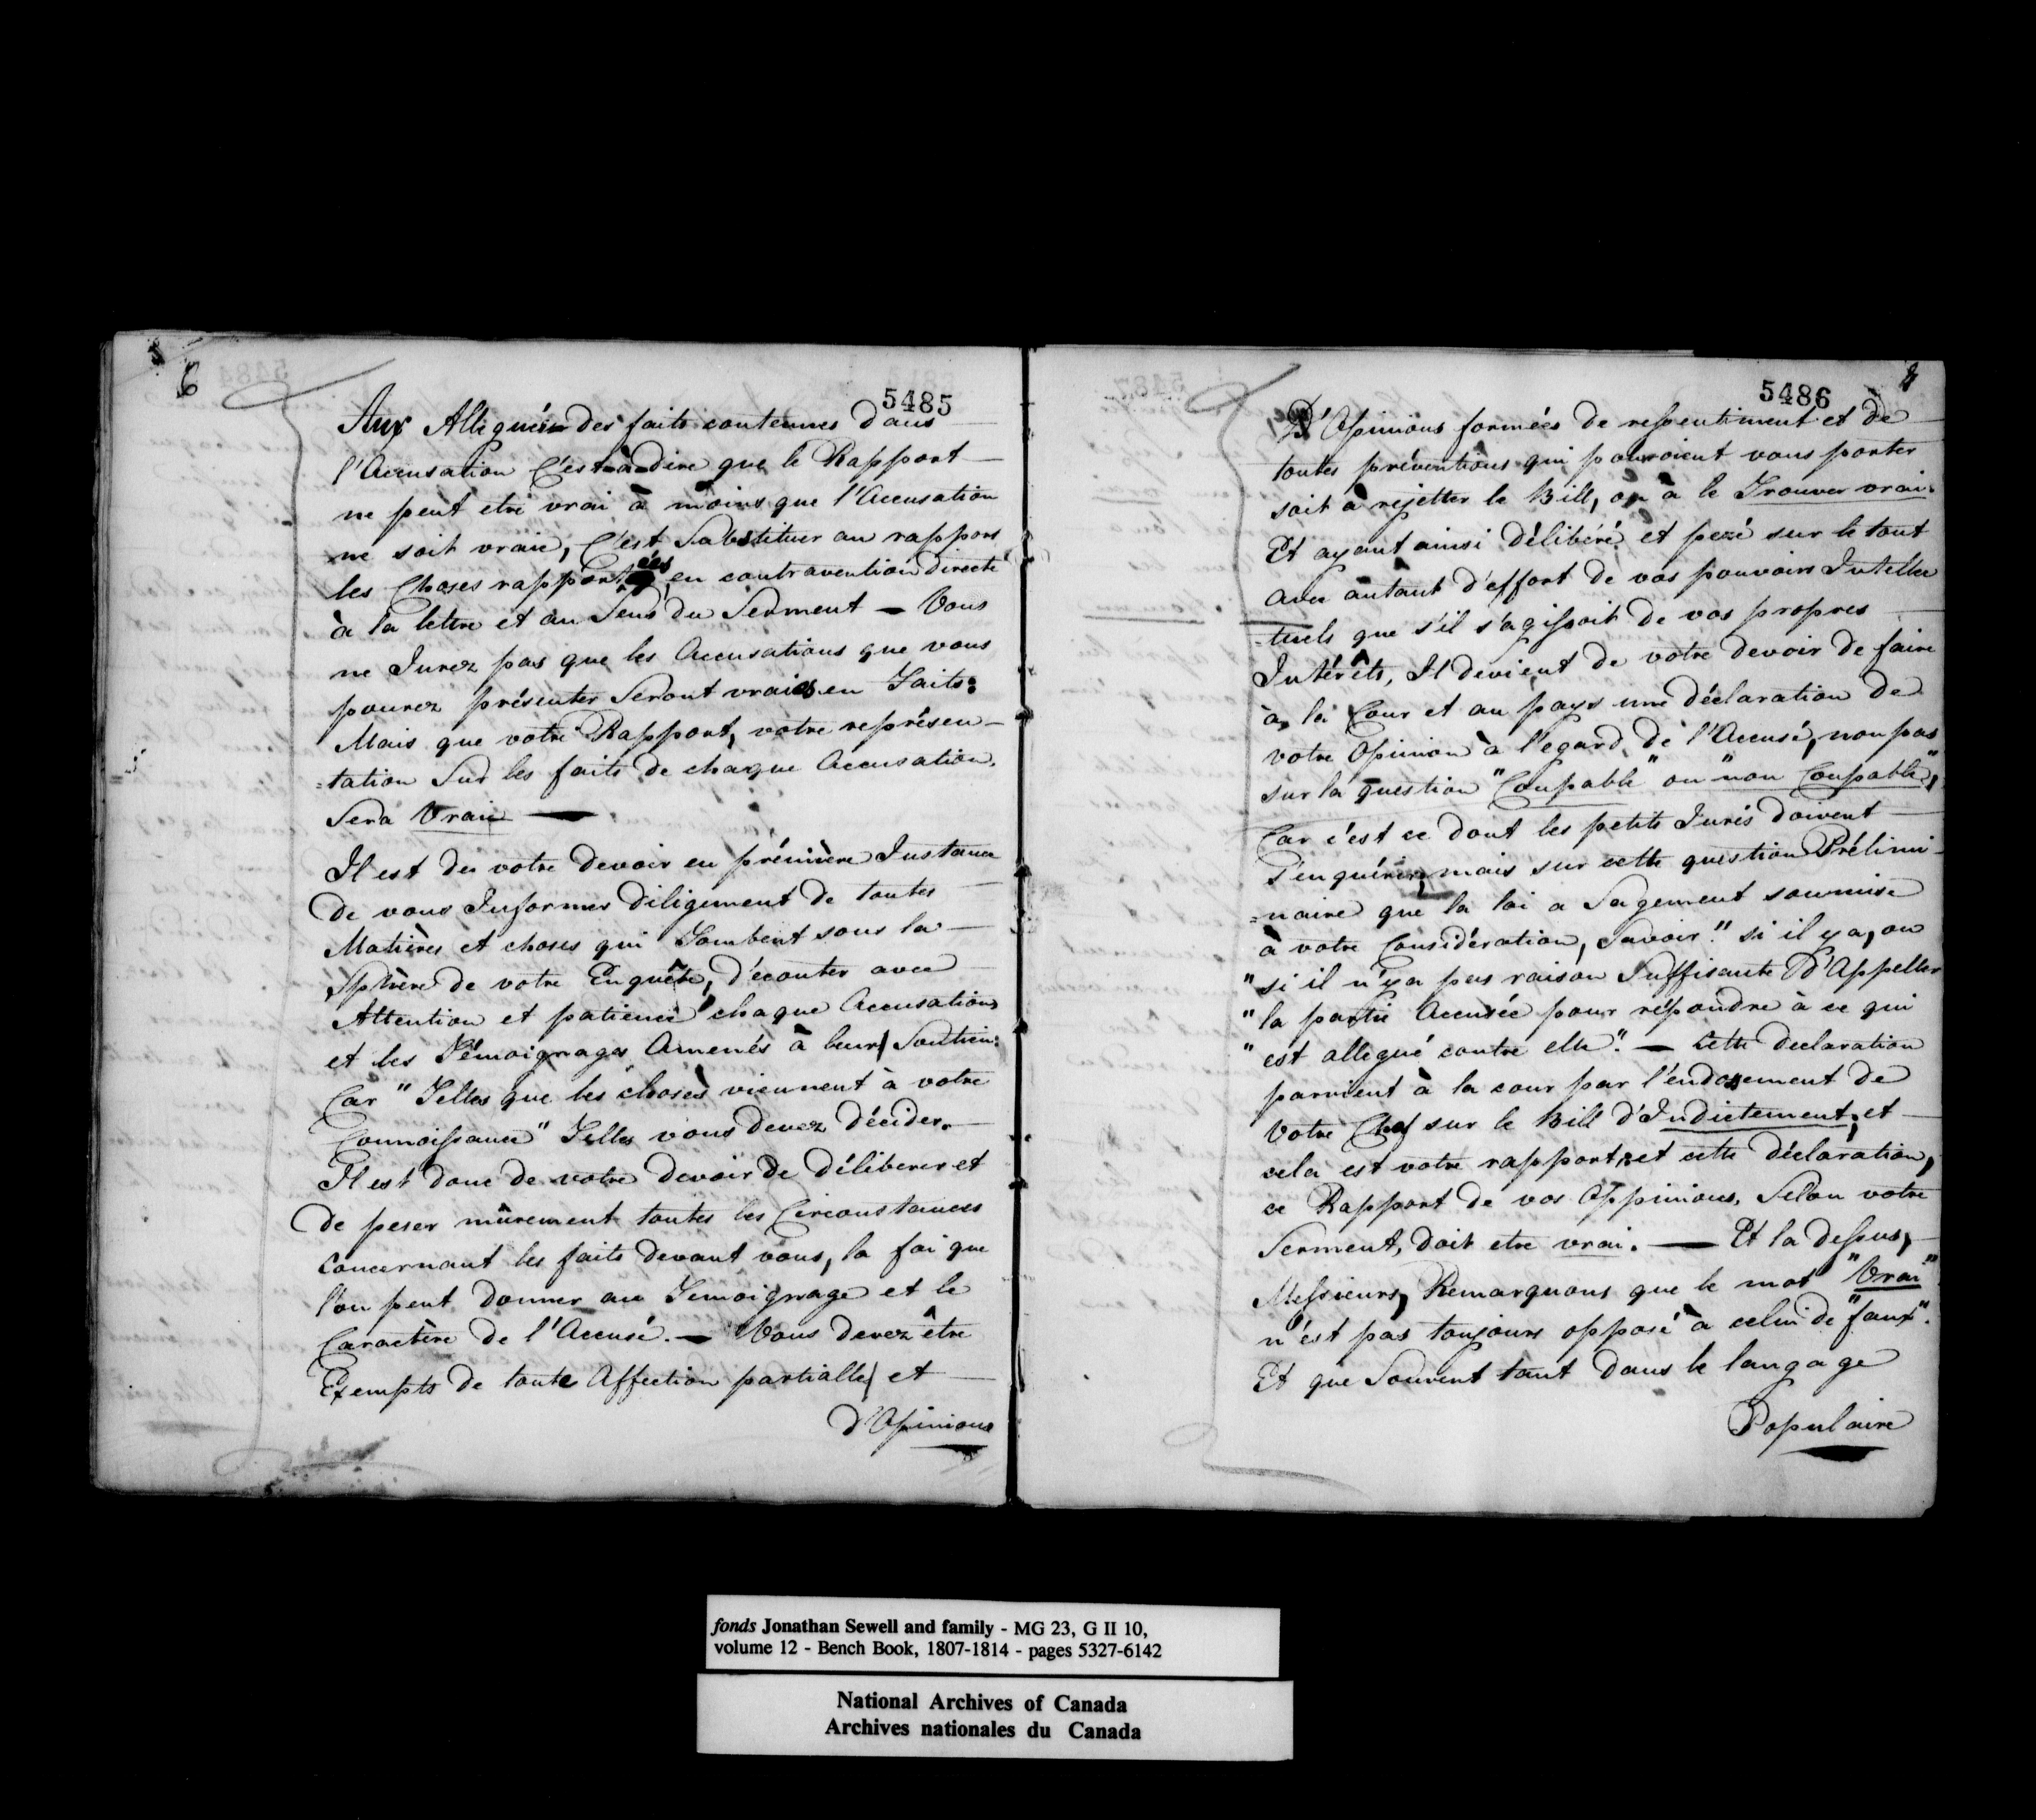 6
5485
Aux Allegués des faits contenues dans
l'Accusation C'est-à-dire que le Rapport
ne peut etre vrai à moins que l'Accusation
ne soit vraie, C'est Substituer au rapport
les Choses rapportées en contravention directe
à la lettre et au Sens du Serment — Vous
ne Jurez pas que les Accusations que vous
pourez présenter Seront vraies en Faits:
Mais que votre Rapport, votre représen-
=tation Sur les faits de chaque Accusation,
Sera Vraie —
Il est de votre devoir en prémière Instance
De vous Informer Diligement de toutes
Matières et choses qui Tombent sous la
Sphère de votre Enquête, d'écouter avec
Attention et patience chaque Accusation
et les Témoignages Amenés à leur Soutien:
Car "Telles que les choses viennent à votre
Connoissance" Telles vous devez Décider.
Il est donc de votre Devoir de Déliberer et
De peser mûrement toutes les Circonstances
Concernant les faits devant vous, la foi que
l'on peut Donner au Temoignage et le
Caractère de l'Accusé. — Vous devez être
Exempts de toute Affection partialle et
d'Opinions
5486
D'Opinions formées de ressentiment et de
toutes préventions qui pouroient vous porter
soit à rejetter le Bill, ou à le Trouver vrai.
Et ayant ainsi Délibéré et pezé sur le tout
avec autant d'effort de vos pouvoirs Intellec
=tuels que s'il s'agissoit de vos propres
Intérêts, Il devient de votre devoir de faire
à la Cour et au pays une déclaration de
votre Opinion à l'egard de l'Accusé, non pas
sur la question "Coupable" ou "non Coupable",
Car c'est ce dont les petits Jurés doivent
S'enquérir, mais sur cette question Prélimi-
=naire que la loi a Sagement soumise
à votre Considération, Savoir." si il y a, ou
"si il n'y a pas raison Suffisante D'Appeller
"la partie Accusée pour répondre à ce qui
"est allegué contre elle". — Cette declaration
parvient à la cour par l'endosement de
Votre Chef sur le Bill d'Indictement, et
cela est votre rapport, et cette déclaration,
ce Rapport de vos Oppinions, Selon votre
Serment, doit etre vrai. — Et la dessus,
Messieurs, Remarquons que le mot "Vrai"
n'est pas toujours opposé à celui de "faux".
Et que Souvent tant Dans le langage
Populaire
fonds Jonathan Sewell and family - MG 23, G II 10,
volume 12 - Bench Book, 1807-1814 - pages 5327-6142
National Archives of Canada
Archives nationales du Canada